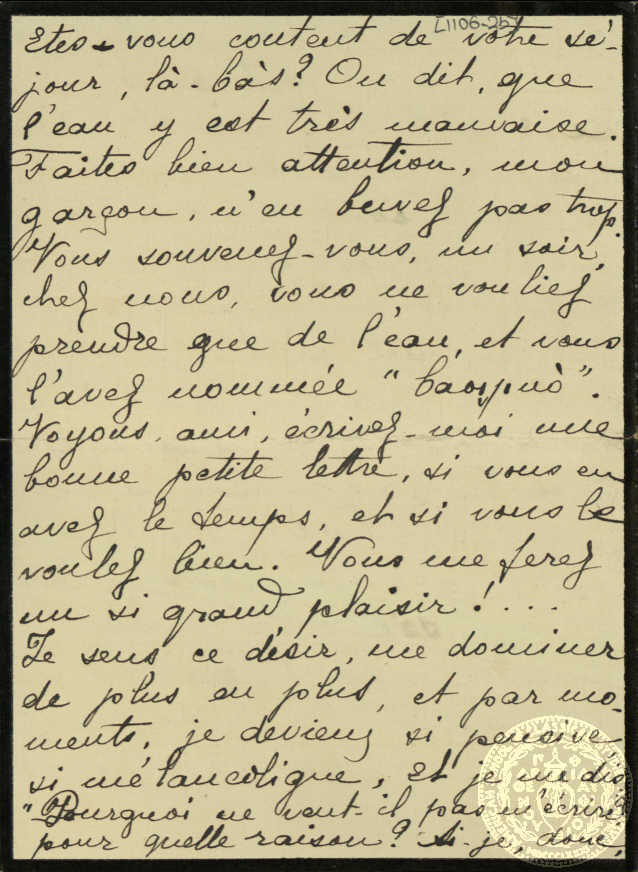 L1106-257
Etes-vous content de votre sé-
jour, là-bàs? On dit, que
l'eau y est très mauvaise.
Faites bien attention, mon
garçon, n'en buvez pas trop.
Vous souvenez-vous, un soir,
chez nous, vous ne vouliez
prendre que de l'eau, et vous
l'avez nommée "
Voyons, ami, écrivez-moi une
bonne petite lettre, si vous en
avez le temps, et si vous le
voulez bien. Vous me ferez
un si grand plaisir!...
Je sens ce désir, me dominer
de plus en plus, et par mo-
ments, je deviens si pensive
si mélancolique, et je me dis
"Pourquoi ne veut-il pas m'écrire
pour quelle raison? Ai-je, donc,